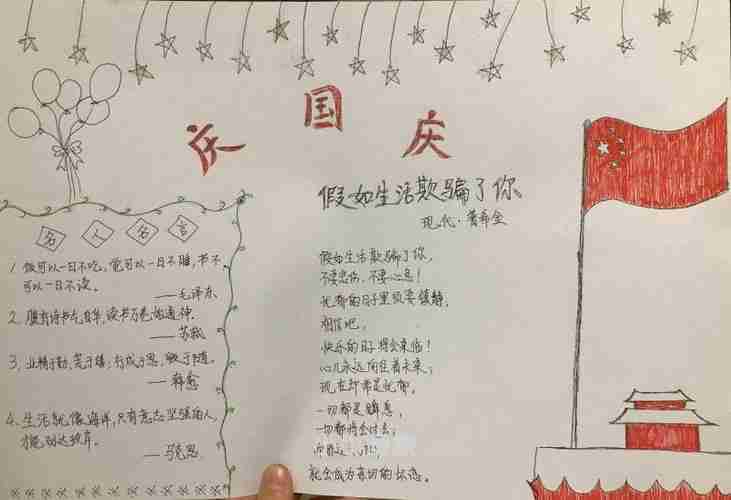 庆国庆
名人名言
1. 饭可以一日不吃,觉可以一日不睡,书不
可以一日不读。
——毛泽东
2. 腹有诗书气自华,读书万卷始通神.
——苏轼
3, 业精于勤,荒于嬉;行成于思,毁于随。
——韩愈
4. 生活就像海洋,只有意志坚强的人,
才能到达彼岸.
——马克思
假如生活欺骗了你
现代·普希金
假如生活欺骗了你,
不要悲伤,不要心急!
忧郁的日子里须要镇静,
相信吧,
快乐的日子将会来临!
心儿永远向往着未来;
现在却常是忧郁。
一切都是瞬息,
一切都将会过去;
就会成为亲切的怀恋。